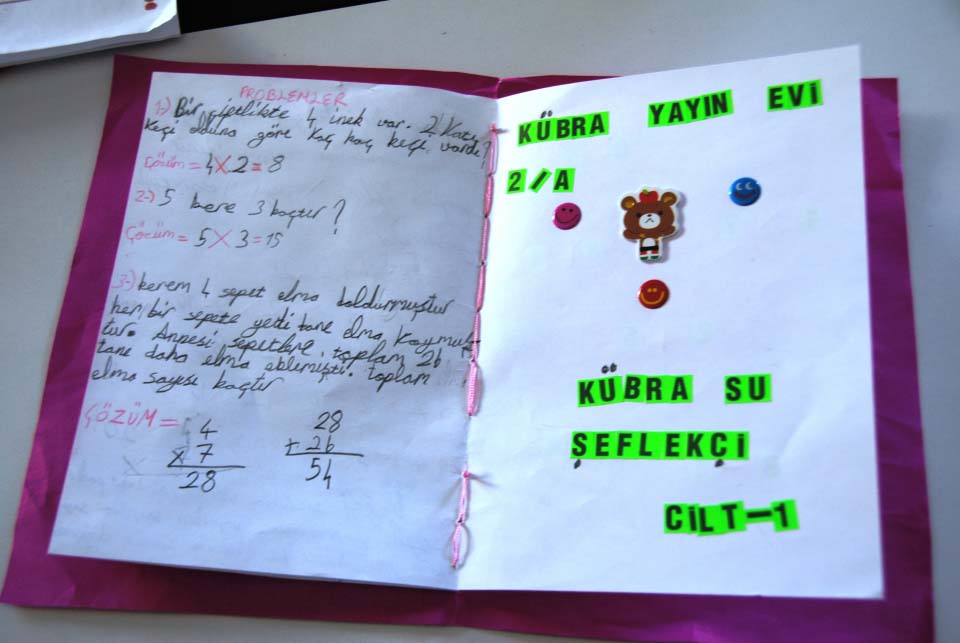 PROBLEMLER
1-) Bir çiftlikte 4 inek var. 2 Katı
Keçi olduna göre Kaç kaç keçi vardır?
Çözüm = 4 X 2 = 8
2-) 5 kere 3 kaçtır?
Çözüm = 5 X 3 = 15
3-) kerem 4 sepet elma doldurmuştur
her bir sepete yetti tane elma Koymuş
tur. Annesi sepetlere toplam 26
tane daha elma eklemişti. toplam
elma sayısı kaçtır
ÇÖZÜM =
4
x 7
28
28
+ 26
54
KÜBRA YAYIN EVİ
2/A
KÜBRA SU
ŞEFLEKÇİ
CİLT-1